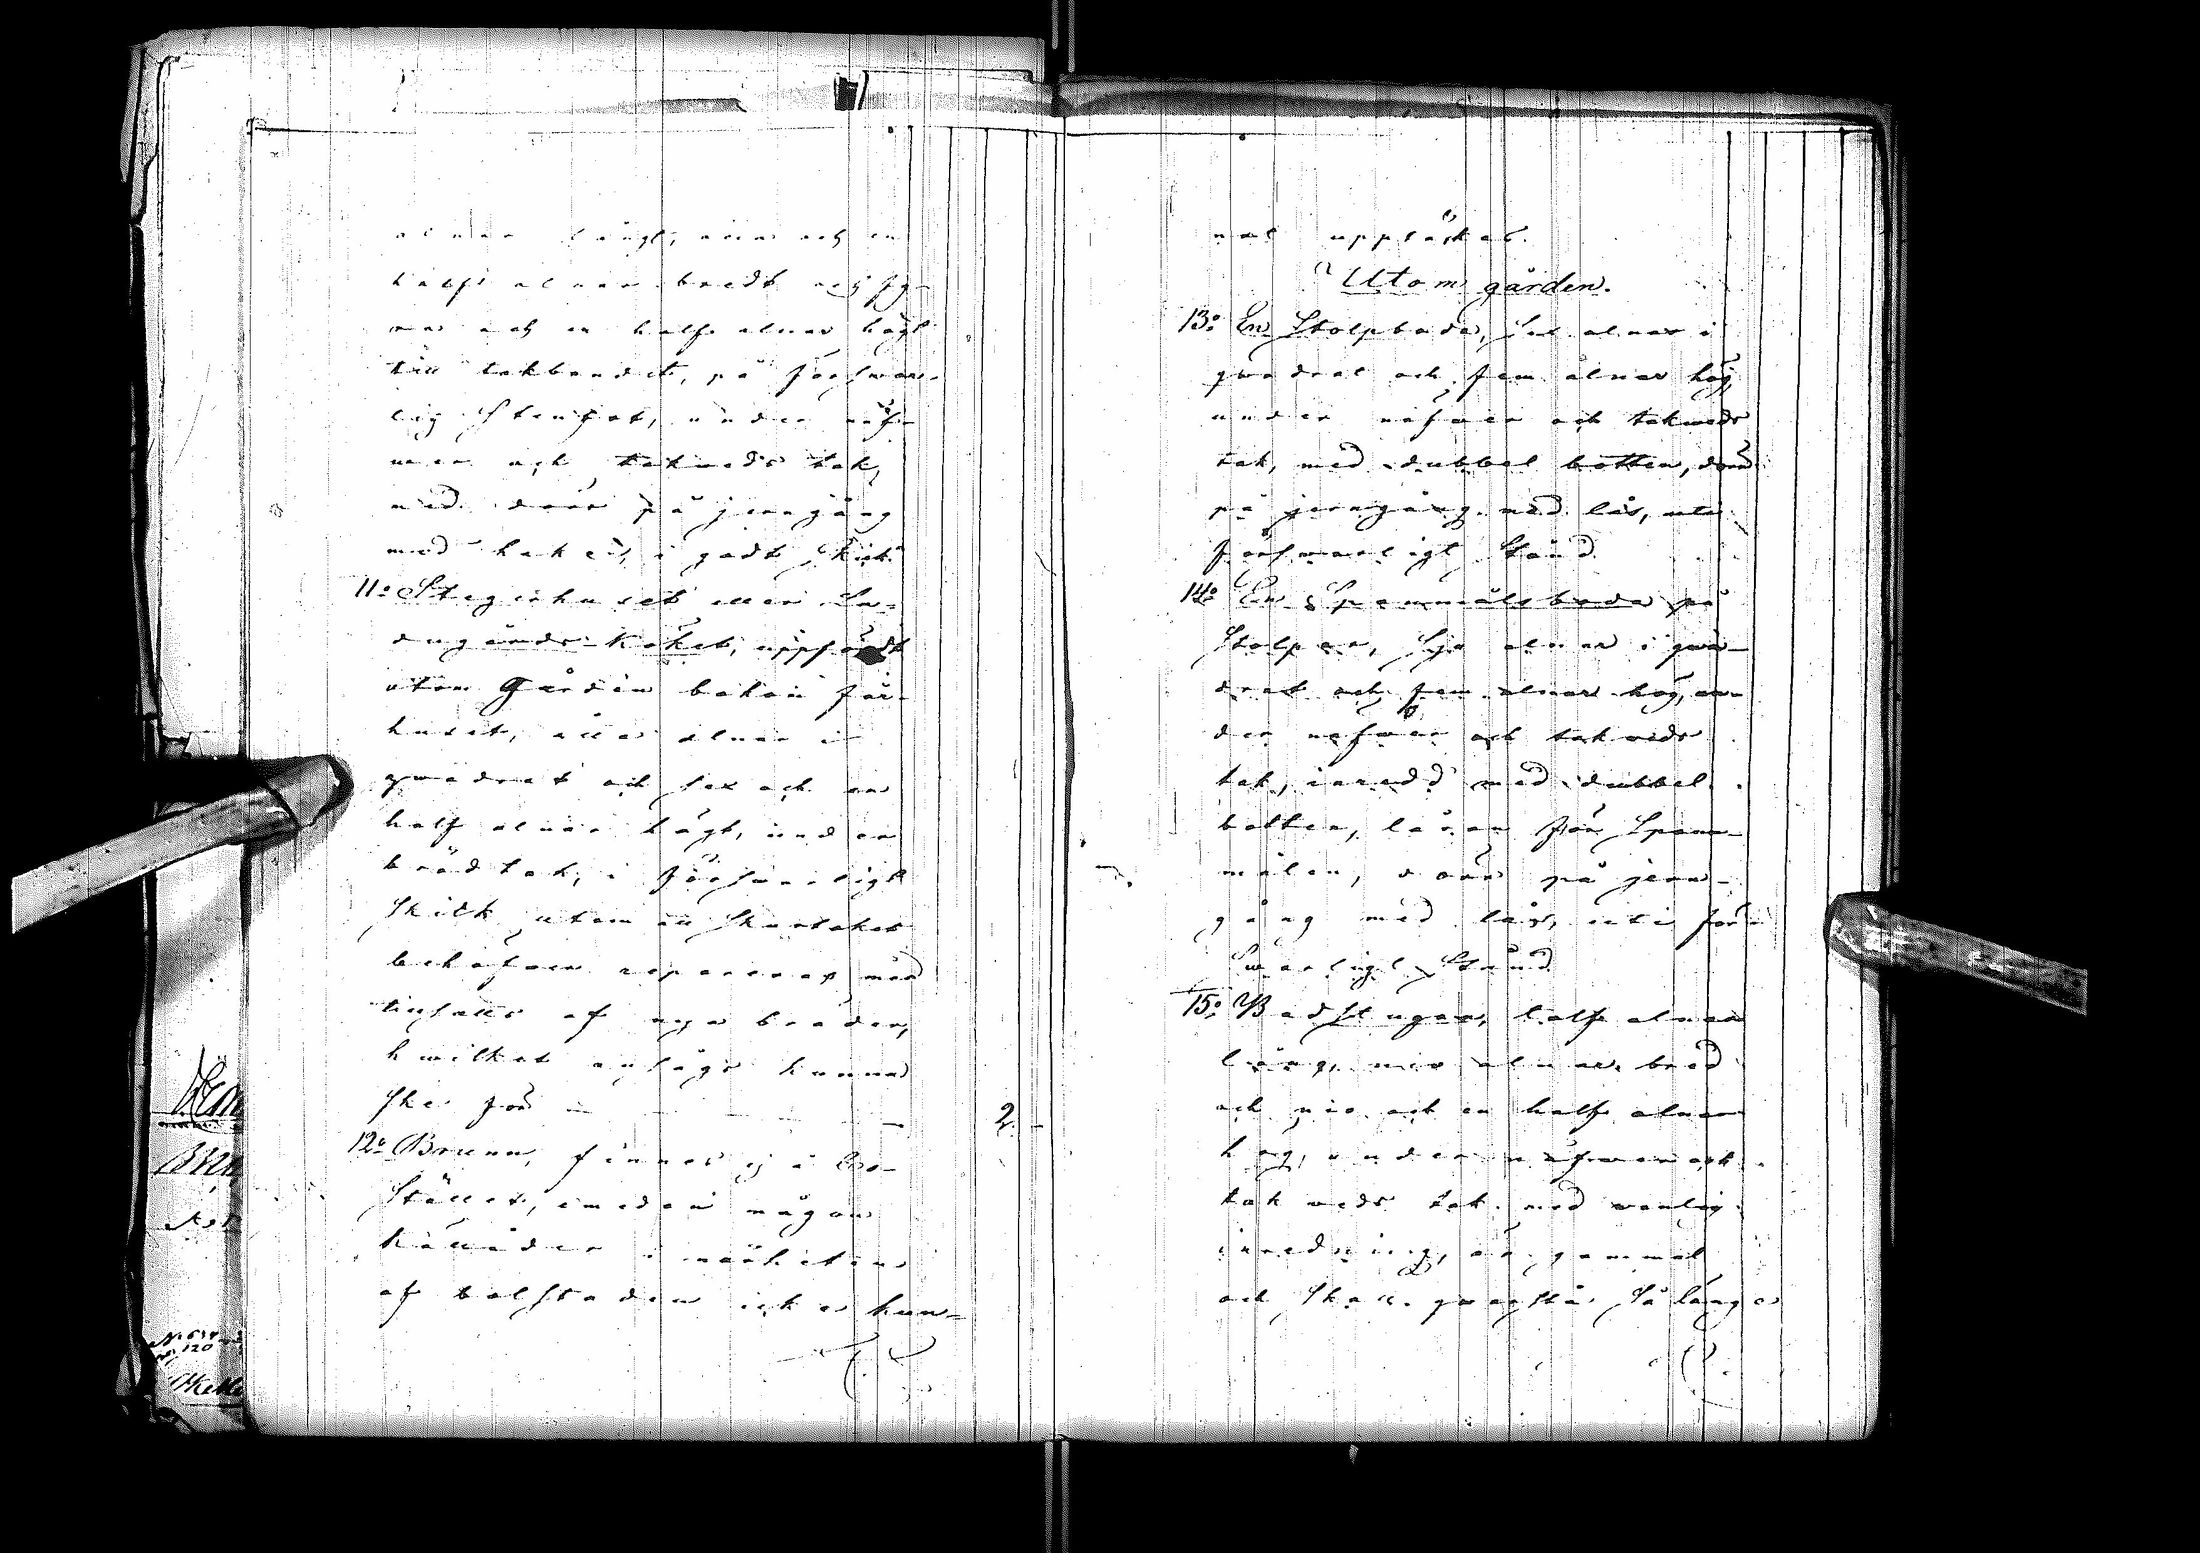 alnar långt, nio och en
half alnar bredt och fy-
ra och en half alnar högt
till takbandet, på försvar-
lig Stenfot, under näf-
wer och takweds tak,
med dörr på jerngång
med hake, i godt skick
11o Stegerhuset eller La-
dugårds-Köket, uppfördt
utom Gården bakom fär-
huset, åtta alnar i
qwadrat och sex och en
half alnar högt, under
brädtak, i försvarligt
skick utom att skurtaket
behöfwer repareras med
tillsatts af nya bräder,
hwilket ansågs kunna
ske för — — — —  2 -
12o Brunn, finnes ej å Bo-
stället, emedan någon
källåder i närheten
af bolstaden icke kun-
nat upptäckas.
Utom gården.
13o En Stolpbod, sex alnar i
qwadrat och fem alnar hög
under näfwer och takweds
tak, med dubbel botten, dörr
på jerngång med lås, uti
försvarligt stånd
14o En Spannmålsbod på
Stolpar, sju alnar i qwa-
drat och fem alnar hög, un-
der näfwer och takweds
tak, inredd med dubbel
botten, lårar för Spann-
målen, dörr på jern-
gång med lås, uti för-
swarligt Stånd
15o Badstugan, half alnar
lång, nio alnar bred
och nio och en half alnar
hög, under näfwer och
takweds tak med wanlig
inredning, är gammal
och skall qwarstå så länge